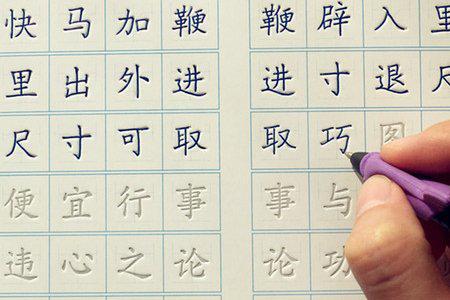 快马加鞭 鞭辟入里
里出外进 进寸退尺
尺寸可取 取巧图
便宜行事 事与
违心之论 论功